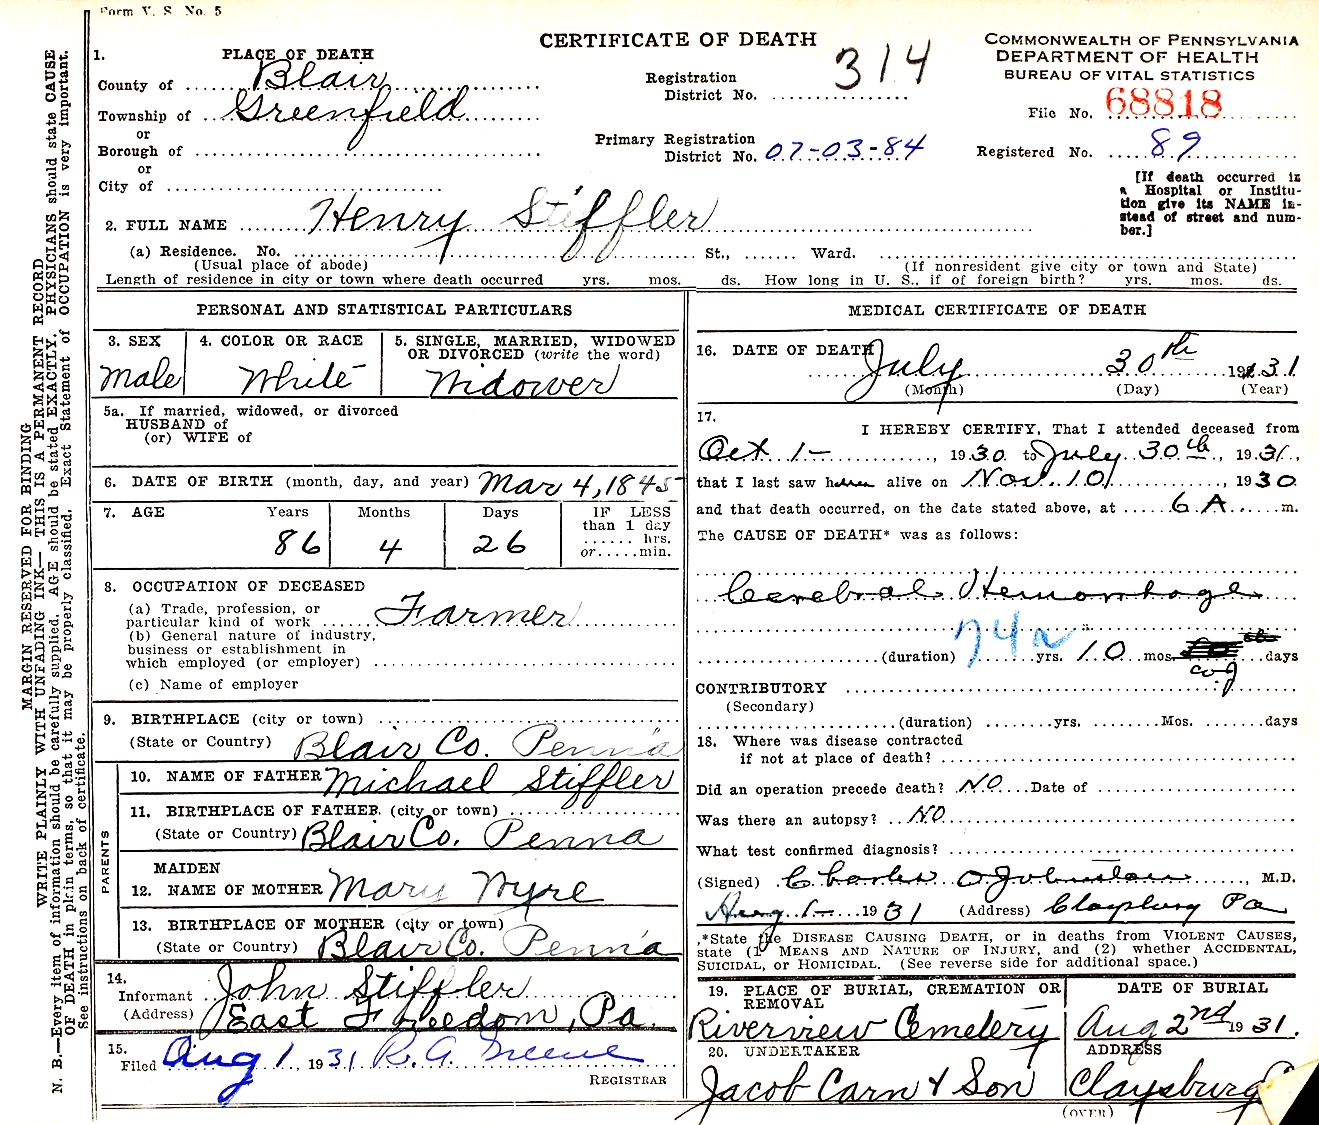 Form V. S. No. 5
CERTIFICATE OF DEATH
COMMONWEALTH OF PENNSYLVANIA
DEPARTMENT OF HEALTH
BUREAU OF VITAL STATISTICS
File No. 68818
Registered No. 89
[If death occurred in
a Hospital or Institu-
tion give its NAME in-
stead of street and num-
ber.]
1. PLACE OF DEATH
County of Blair
Township of Greenfield
or
Borough of
or
City of
Registration
District No. 314
Primary Registration
District No. 07-03-84
2. FULL NAME Henry Stiffler
(a) Residence. No. St., Ward.
(Usual place of abode) (If nonresident give city or town and State)
Length of residence in city or town where death occurred yrs. mos. ds. How long in U. S., if of foreign birth? yrs. mos. ds.
PERSONAL AND STATISTICAL PARTICULARS
3. SEX
Male
4. COLOR OR RACE
White
5. SINGLE, MARRIED, WIDOWED
OR DIVORCED (write the word)
Widower
5a. If married, widowed, or divorced
HUSBAND of
(or) WIFE of
6. DATE OF BIRTH (month, day, and year) Mar 4, 1845
7. AGE Years Months Days IF LESS
than 1 day
hrs.
or min.
86 4 26
8. OCCUPATION OF DECEASED
(a) Trade, profession, or
particular kind of work Farmer
(b) General nature of industry,
business or establishment in
which employed (or employer)
(c) Name of employer
9. BIRTHPLACE (city or town)
(State or Country) Blair Co. Penna
PARENTS
10. NAME OF FATHER Michael Stiffler
11. BIRTHPLACE OF FATHER (city or town)
(State or Country) Blair Co. Penna
MAIDEN
12. NAME OF MOTHER Mary Wyre
13. BIRTHPLACE OF MOTHER (city or town)
(State or Country) Blair Co. Penna
14.
Informant John Stiffler
(Address) East Freedom, Pa.
15.
Filed Aug 1, 1931 R. A. Greene
REGISTRAR
MEDICAL CERTIFICATE OF DEATH
16. DATE OF DEATH
July 30th 1931
(Month) (Day) (Year)
17.
I HEREBY CERTIFY, That I attended deceased from
Oct 1-, 1930 to July 30th, 1931,
that I last saw alive on Nov. 10, 1930
and that death occurred, on the date stated above, at 6 A. m.
The CAUSE OF DEATH* was as follows:
Cerebral Hemorrhage
74a
(duration) yrs. 10 mos. days
coj
CONTRIBUTORY
(Secondary)
(duration) yrs. Mos. days
18. Where was disease contracted
if not at place of death?
Did an operation precede death? NO Date of
Was there an autopsy? NO
What test confirmed diagnosis?
(Signed) Charles O Johnston, M.D.
Aug 1- 1931 (Address) Claysburg Pa
*State the DISEASE CAUSING DEATH, or in deaths from VIOLENT CAUSES,
state (1) MEANS AND NATURE OF INJURY, and (2) whether ACCIDENTAL,
SUICIDAL, or HOMICIDAL. (See reverse side for additional space.)
19. PLACE OF BURIAL, CREMATION OR
REMOVAL
Riverview Cemetery
DATE OF BURIAL
Aug 2nd 1931.
20. UNDERTAKER
Jacob Carn & Son
ADDRESS
Claysburg
(OVER)
MARGIN RESERVED FOR BINDING
WRITE PLAINLY WITH UNFADING INK— THIS IS A PERMANENT RECORD
N. B.—Every item of information should be carefully supplied. AGE should be stated EXACTLY. PHYSICIANS should state CAUSE
OF DEATH in plain terms, so that it may be properly classified. Exact Statement of OCCUPATION is very important.
See instructions on back of certificate.